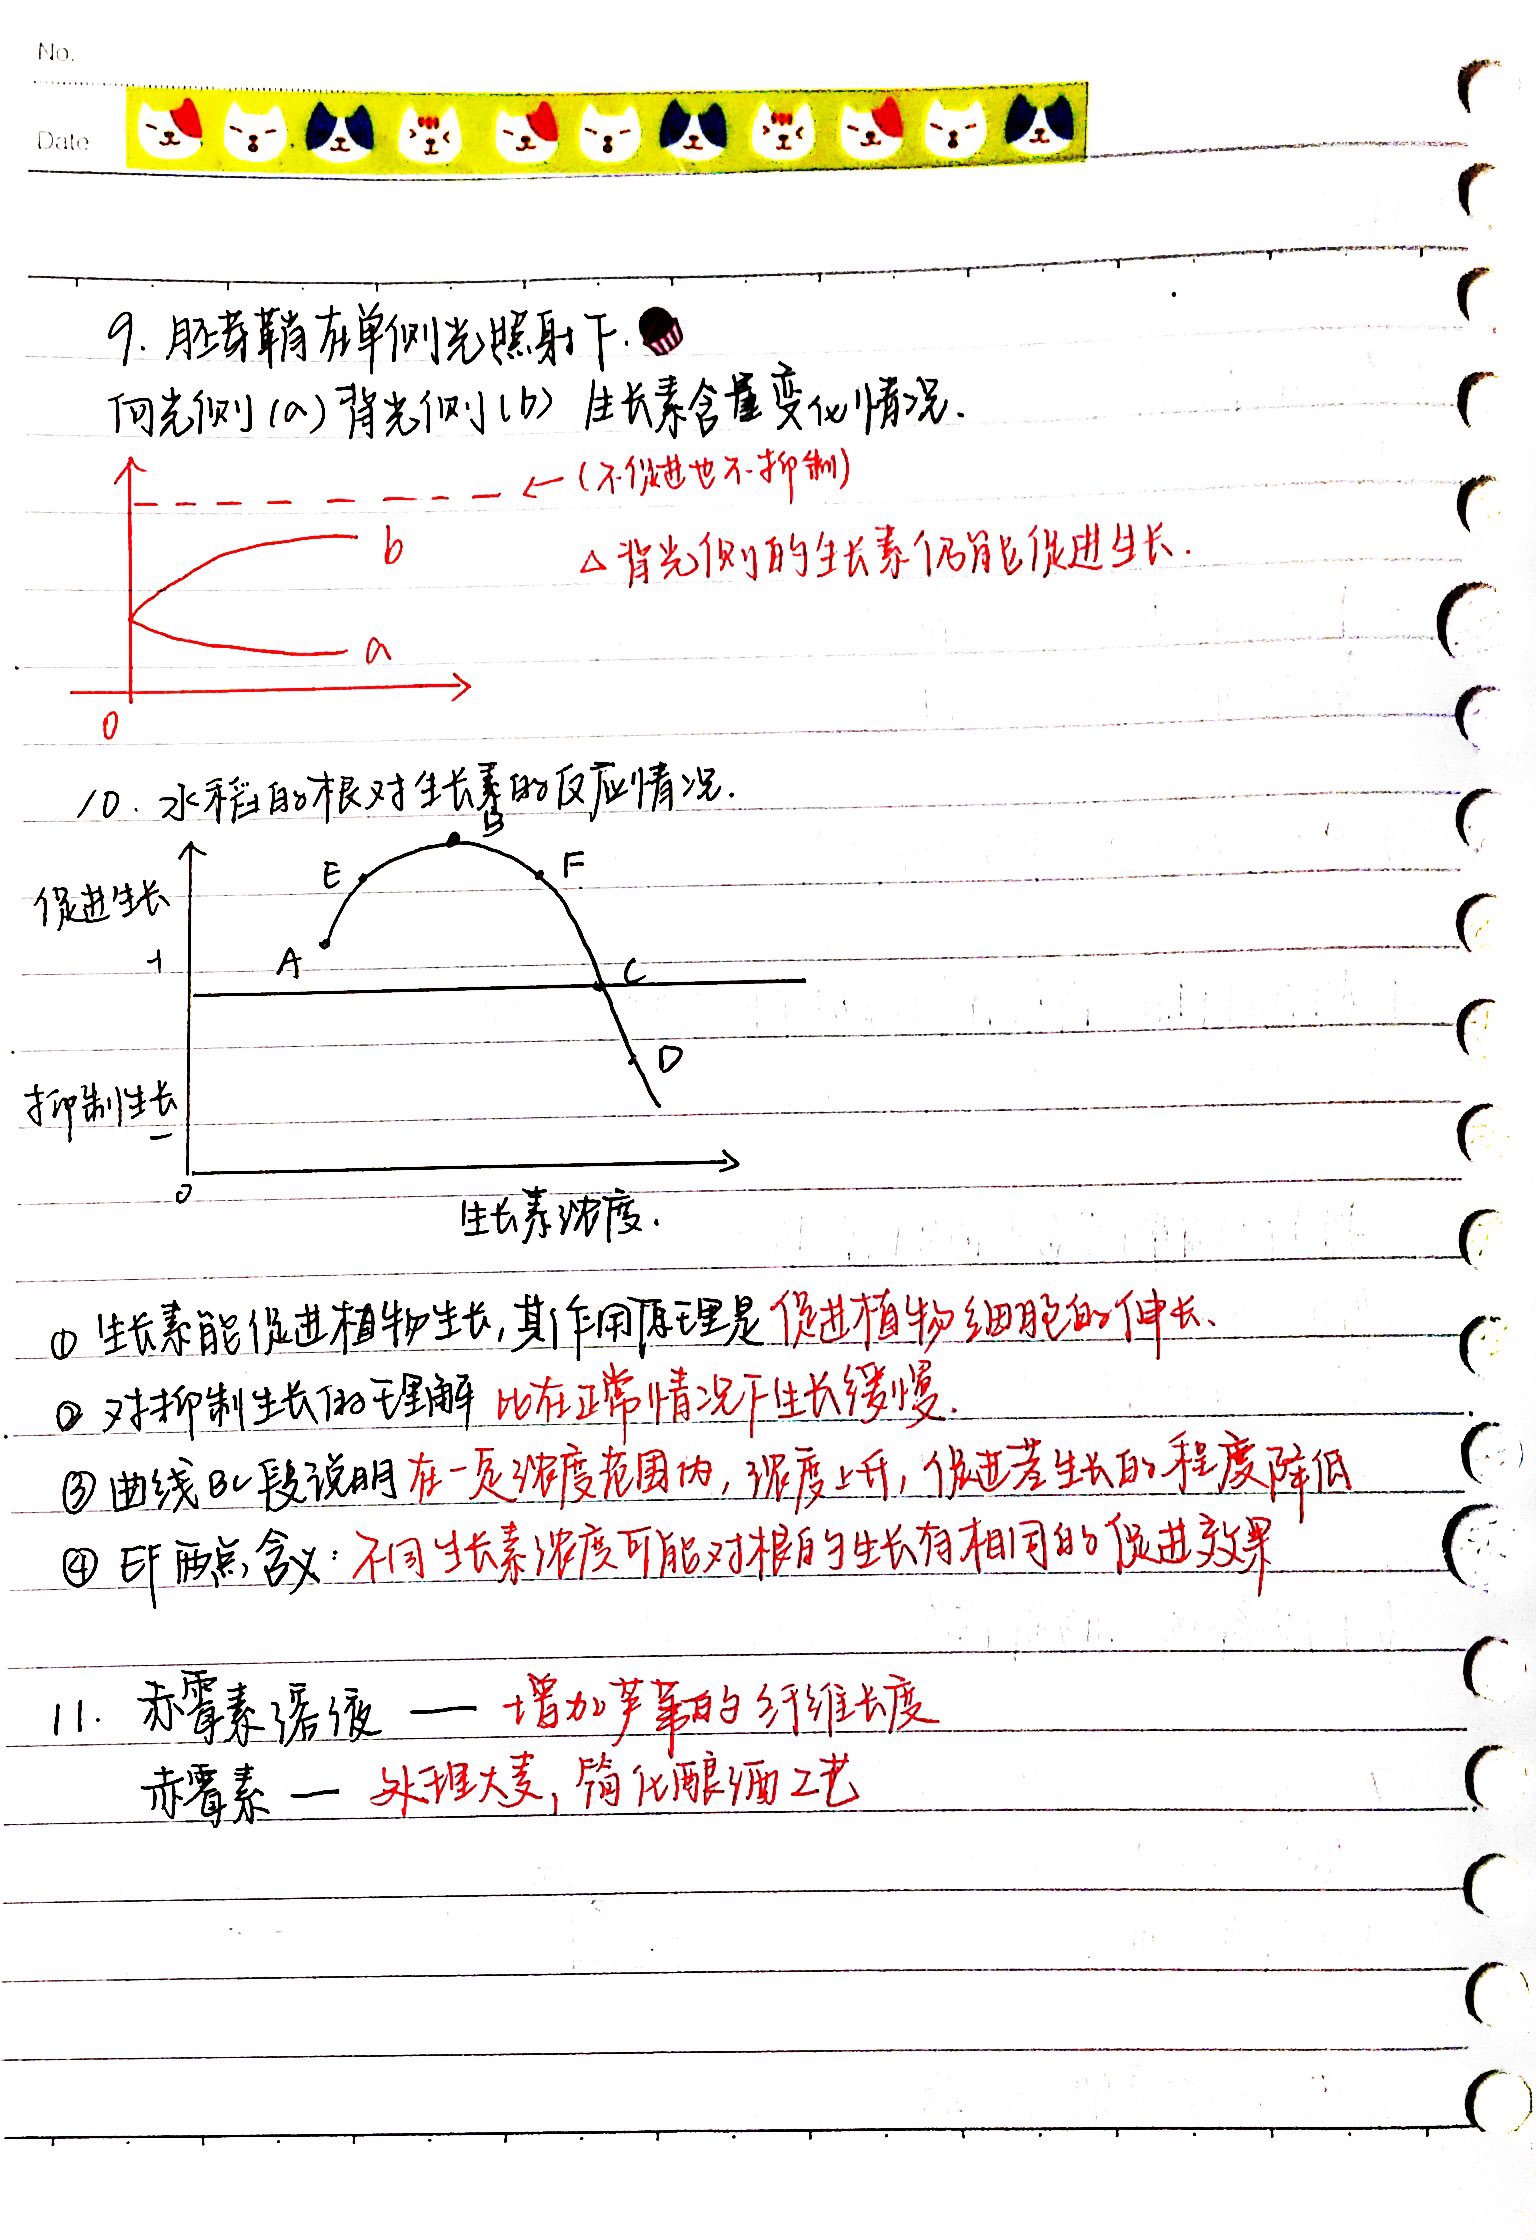 No.
Date
9. 胚芽鞘在单侧光照射下.
向光侧(a)背光侧(b) 生长素含量变化情况.
←(不促进也不抑制)
b
△背光侧的生长素仍能促进生长.
a
0
10. 水稻的根对生长素的反应情况.
B
E
F
促进生长
+
A
C
D
抑制生长
-
0
生长素浓度.
① 生长素能促进植物生长,其作用原理是促进植物细胞的伸长.
② 对抑制生长的理解 比在正常情况下生长缓慢.
③ 曲线BC段说明在一定浓度范围内,浓度上升,促进芽生长的程度降低
④ EF两点含义:不同生长素浓度可能对根的生长有相同的促进效果
11. 赤霉素溶液 — 增加芦苇的纤维长度
赤霉素 — 处理大麦,简化酿酒工艺